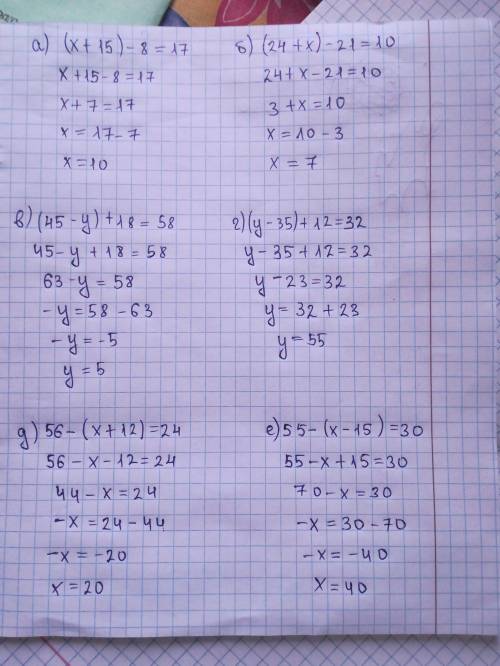 а) (x + 15) - 8 = 17
x + 15 - 8 = 17
x + 7 = 17
x = 17 - 7
x = 10
б) (24 + x) - 21 = 10
24 + x - 21 = 10
3 + x = 10
x = 10 - 3
x = 7
в) (45 - y) + 18 = 58
45 - y + 18 = 58
63 - y = 58
- y = 58 - 63
- y = -5
y = 5
г) (y - 35) + 12 = 32
y - 35 + 12 = 32
y - 23 = 32
y = 32 + 23
y = 55
д) 56 - (x + 12) = 24
56 - x - 12 = 24
44 - x = 24
- x = 24 - 44
- x = -20
x = 20
е) 55 - (x - 15) = 30
55 - x + 15 = 30
70 - x = 30
- x = 30 - 70
- x = -40
x = 40